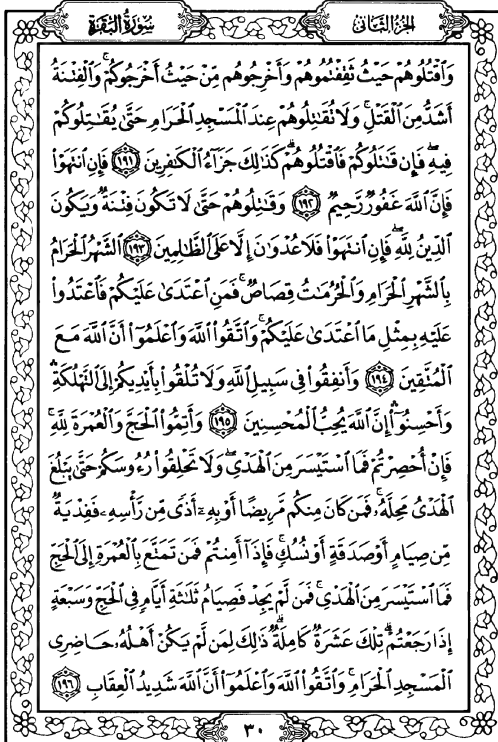 سُورَةُ البَقَرَة الجزء الثاني
وَاقْتُلُوهُمْ حَيْثُ ثَقِفْتُمُوهُمْ وَأَخْرِجُوهُم مِّنْ حَيْثُ أَخْرَجُوكُمْ ۚ وَالْفِتْنَةُ
أَشَدُّ مِنَ الْقَتْلِ ۚ وَلَا تُقَاتِلُوهُمْ عِندَ الْمَسْجِدِ الْحَرَامِ حَتَّىٰ يُقَاتِلُوكُمْ
فِيهِ ۖ فَإِن قَاتَلُوكُمْ فَاقْتُلُوهُمْ ۗ كَذَٰلِكَ جَزَاءُ الْكَافِرِينَ ﴿١٩١﴾ فَإِنِ انتَهَوْا
فَإِنَّ اللَّهَ غَفُورٌ رَّحِيمٌ ﴿١٩٢﴾ وَقَاتِلُوهُمْ حَتَّىٰ لَا تَكُونَ فِتْنَةٌ وَيَكُونَ
الدِّينُ لِلَّهِ ۖ فَإِنِ انتَهَوْا فَلَا عُدْوَانَ إِلَّا عَلَى الظَّالِمِينَ ﴿١٩٣﴾ الشَّهْرُ الْحَرَامُ
بِالشَّهْرِ الْحَرَامِ وَالْحُرُمَاتُ قِصَاصٌ ۚ فَمَنِ اعْتَدَىٰ عَلَيْكُمْ فَاعْتَدُوا
عَلَيْهِ بِمِثْلِ مَا اعْتَدَىٰ عَلَيْكُمْ ۚ وَاتَّقُوا اللَّهَ وَاعْلَمُوا أَنَّ اللَّهَ مَعَ
الْمُتَّقِينَ ﴿١٩٤﴾ وَأَنفِقُوا فِي سَبِيلِ اللَّهِ وَلَا تُلْقُوا بِأَيْدِيكُمْ إِلَى التَّهْلُكَةِ ۛ
وَأَحْسِنُوا ۛ إِنَّ اللَّهَ يُحِبُّ الْمُحْسِنِينَ ﴿١٩٥﴾ وَأَتِمُّوا الْحَجَّ وَالْعُمْرَةَ لِلَّهِ ۚ
فَإِنْ أُحْصِرْتُمْ فَمَا اسْتَيْسَرَ مِنَ الْهَدْيِ ۖ وَلَا تَحْلِقُوا رُءُوسَكُمْ حَتَّىٰ يَبْلُغَ
الْهَدْيُ مَحِلَّهُ ۚ فَمَن كَانَ مِنكُم مَّرِيضًا أَوْ بِهِ أَذًى مِّن رَّأْسِهِ فَفِدْيَةٌ
مِّن صِيَامٍ أَوْ صَدَقَةٍ أَوْ نُسُكٍ ۚ فَإِذَا أَمِنتُمْ فَمَن تَمَتَّعَ بِالْعُمْرَةِ إِلَى الْحَجِّ
فَمَا اسْتَيْسَرَ مِنَ الْهَدْيِ ۚ فَمَن لَّمْ يَجِدْ فَصِيَامُ ثَلَاثَةِ أَيَّامٍ فِي الْحَجِّ وَسَبْعَةٍ
إِذَا رَجَعْتُمْ ۗ تِلْكَ عَشَرَةٌ كَامِلَةٌ ۗ ذَٰلِكَ لِمَن لَّمْ يَكُنْ أَهْلُهُ حَاضِرِي
الْمَسْجِدِ الْحَرَامِ ۚ وَاتَّقُوا اللَّهَ وَاعْلَمُوا أَنَّ اللَّهَ شَدِيدُ الْعِقَابِ ﴿١٩٦﴾
٣٠